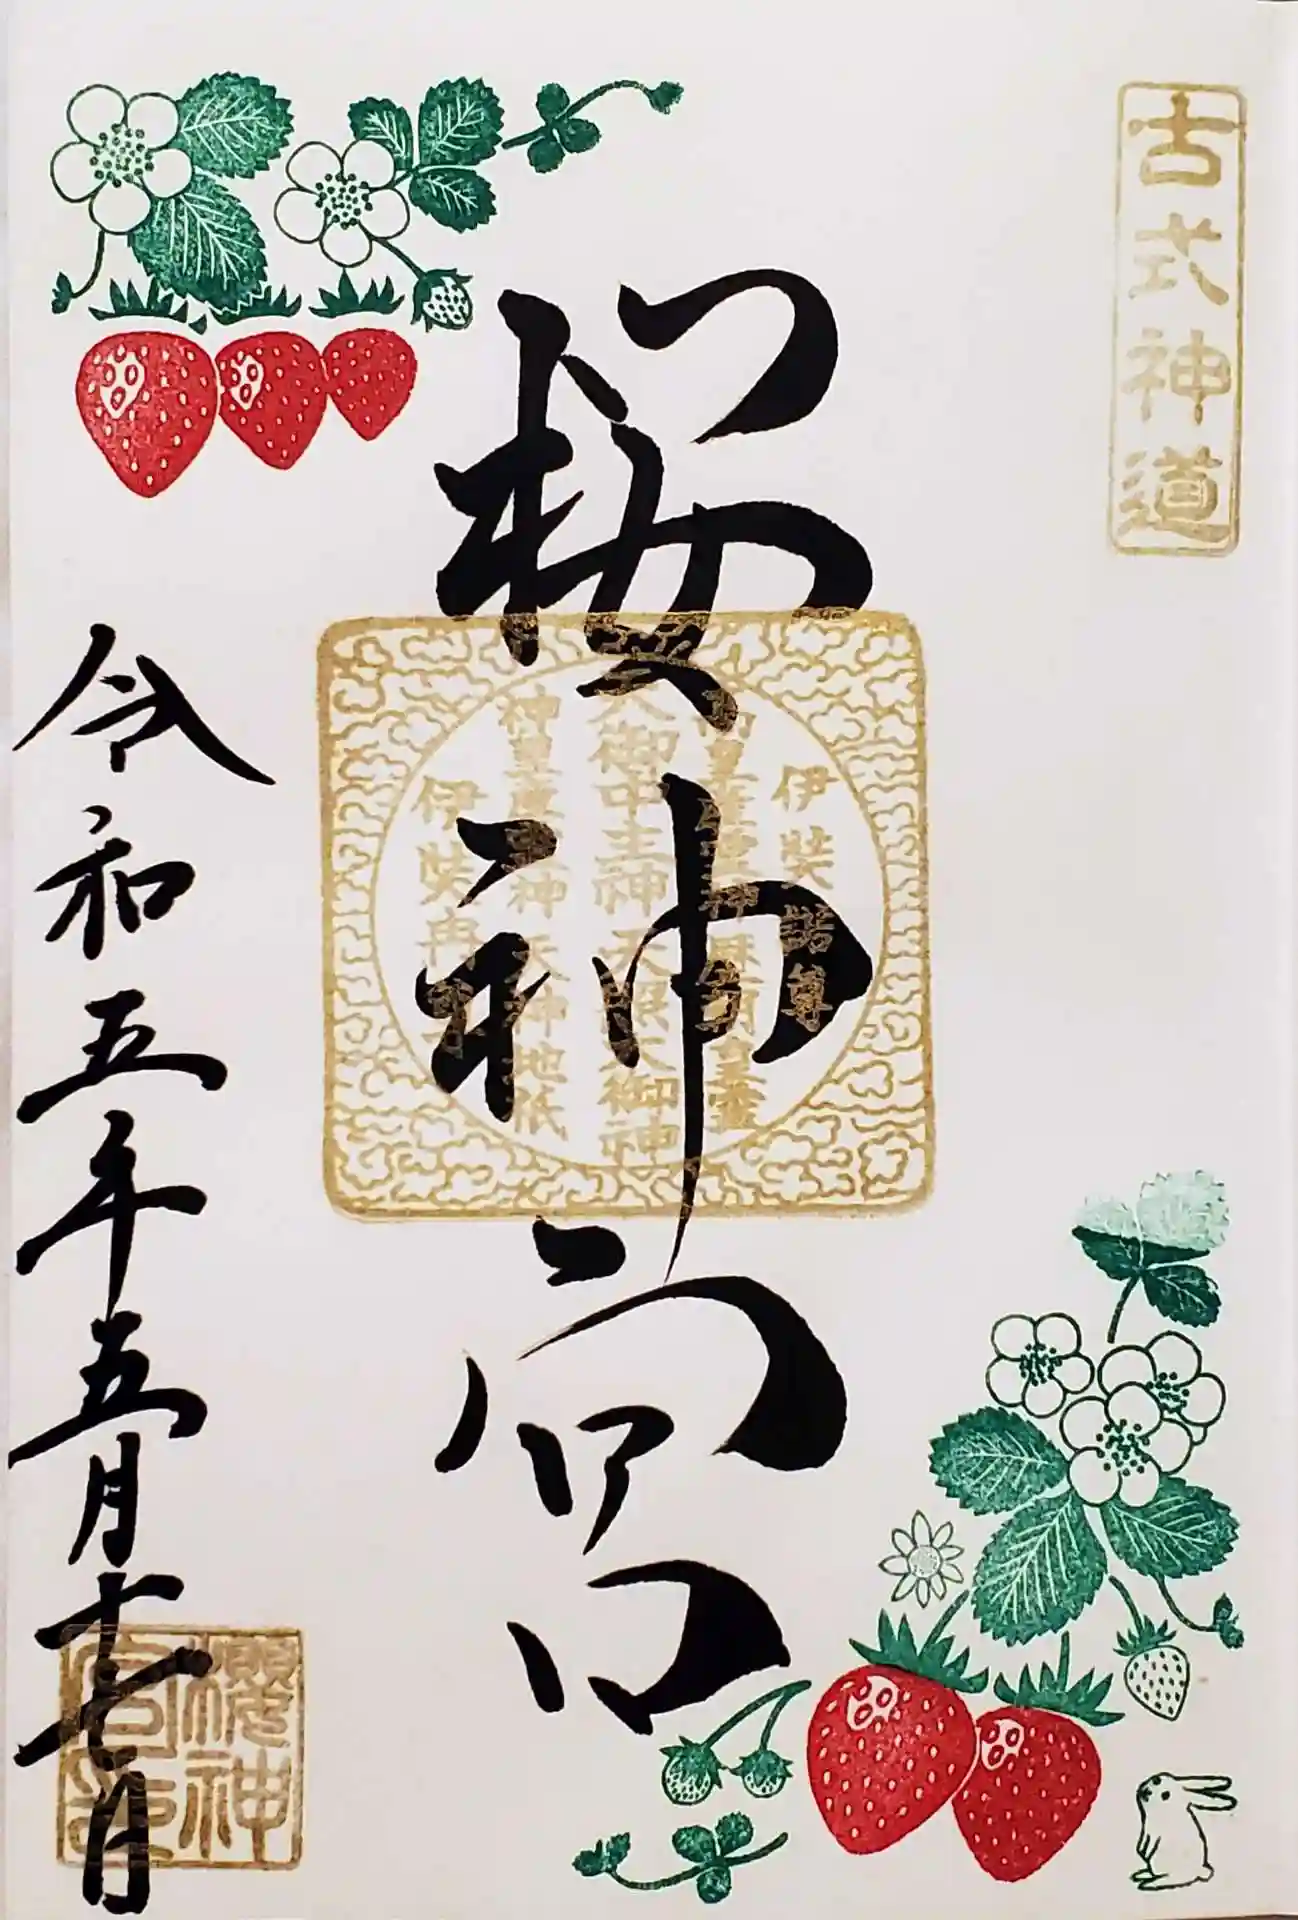 古式神道
桜神宮
伊奘諾尊
天御中主神天照大御神
伊奘冉尊
令和五年五月十七日
櫻神
宮印